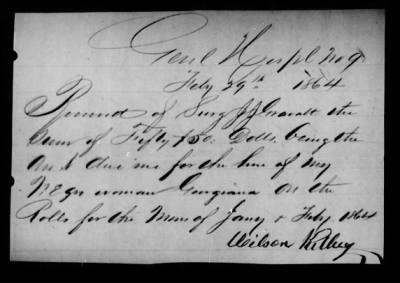 Genl Hospl No 9
Feby 29th 1864
Received of Surg J J Gravatt the
Sum of Fifty $50. Dolls. being the
Amt due me for the hire of my
Negro woman Georgiana on the
Rolls for the Mons of Jany & Feby 1864
Wilson